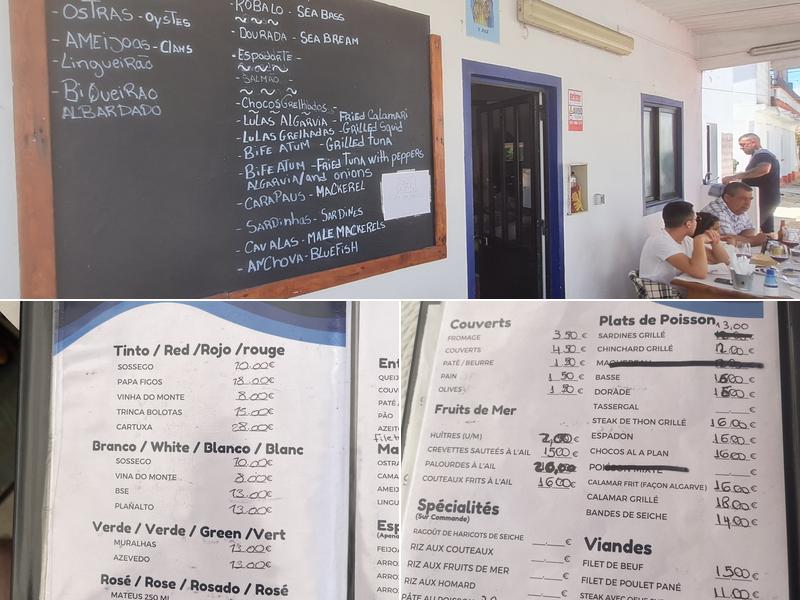 - OSTRAS - OYSTES
- AMEIJOAS - CLAMS
- LINGUEIRÃO
- BIQUEIRÃO
ALBARDADO
ROBALO - SEA BASS
- DOURADA - SEA BREAM
- ESPADARTE -
- SALMÃO -
- CHOCOS GRELHADOS -
- LULAS ALGARVIA - FRIED CALAMARI
- LULAS GRELHADAS - GRILLED SQUID
- BIFE ATUM - GRILLED TUNA
- BIFE ATUM - FRIED TUNA WITH PEPPERS
ALGARVIA/AND ONIONS
- CARAPAUS - MACKEREL
- SARDINHAS - SARDINES
- CAVALAS - MALE MACKERELS
- ANCHOVA - BLUEFISH
Tinto / Red /Rojo /rouge
SOSSEGO 10.00€
PAPA FIGOS 18.00€
VINHA DO MONTE 8.00€
TRINCA BOLOTAS 15.00€
CARTUXA 28.00€
Branco / White / Blanco / Blanc
SOSSEGO 10.00€
VINA DO MONTE 8.00€
BSE 13.00€
PLAÑALTO 13.00€
Verde / Verde / Green /Vert
MURALHAS 13.00€
AZEVEDO 13.00€
Rosé / Rose / Rosado / Rosé
MATEUS 250 ML
Ent
QUEIJ
COUV
PATÉ
PÃO
AZEIT
Ma
OSTRA
CAMA
AMEIJ
LINGU
Esp
FEIJO
ARRO
ARRO
ARRO
Couverts
FROMAGE 3.50€
COUVERTS 4.50€
PATÉ / BEURRE 1.50€
PAIN 1.50€
OLIVES 1.50€
Fruits de Mer
HUÎTRES (U/M) 2,00€
CREVETTES SAUTEÉS À L'AIL 15.00€
PALOURDES À L'AIL €
COUTEAUX FRITS À L'AIL 16.00€
Spécialités
(Sur Commande)
RAGOÛT DE HARICOTS DE SEICHE __.__€
RIZ AUX COUTEAUX __.__€
RIZ AUX FRUITS DE MER __.__€
RIZ AU HOMARD __.__€
Plats de Poisson
13,00
SARDINES GRILLÉ €
CHINCHARD GRILLÉ 12.00€
BASSE €
DORADE €
TASSERGAL __.__€
STEAK DE THON GRILLÉ 16.00€
ESPADON 16.00€
CHOCOS AL A PLAN 16.00€
CALAMAR FRIT (FAÇON ALGARVE) 16.00€
CALAMAR GRILLÉ 18.00€
BANDES DE SEICHE 14.00€
Viandes
FILET DE BEUF 15.00€
FILET DE POULET PANÉ 11.00€